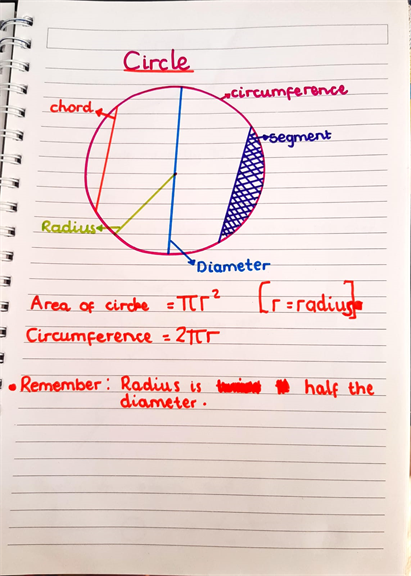 Circle
circumference
chord
segment
Radius
Diameter
Area of circle = πr² [r = radius]
Circumference = 2πr
• Remember: Radius is half the
diameter.